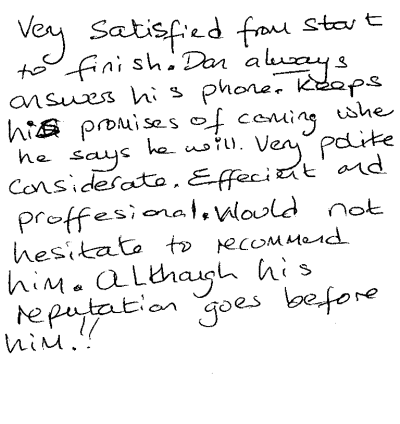 Very Satisfied from start
to finish. Dan always
answers his phone. Keeps
his promises of coming whe
he says he will. Very polite
Considerate. Effecient and
proffesional. Would not
hesitate to recommend
him. Although his
reputation goes before
him.!!